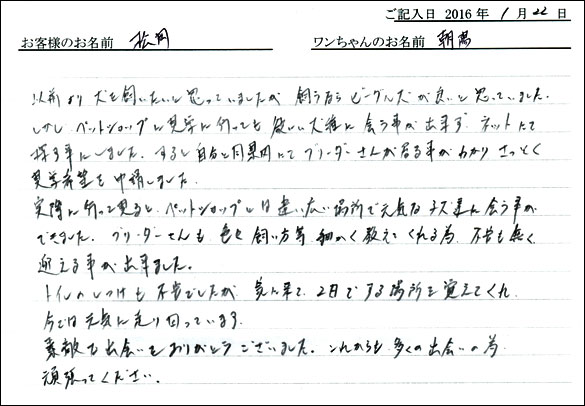 ご記入日 2016 年 1 月 22 日
お客様のお名前 松岡 ワンちゃんのお名前 朝陽
以前より犬を飼いたいと思っていましたが 飼うならビーグル犬が良いと思っていました。
しかし ペットショップに見学に行っても 欲しい犬種に会う事が出来ず ネットにて
探す事にしました。すると自分と同県内にてブリーダーさんが居る事がわかり さっそく
見学希望を申請しました。
実際に行って見ると、ペットショップとは違い広い場所で元気な子犬達に会う事が
できました。ブリーダーさんも 色々飼い方等 細かく教えてくれる為 不安も無く
迎える事が出来ました。
トイレのしつけも不安でしたが 家に来て、2日でする場所を覚えてくれ
今では元気に走り回っています。
素敵な出会いをありがとうございました。これからも 多くの出会いの為
頑張ってください。